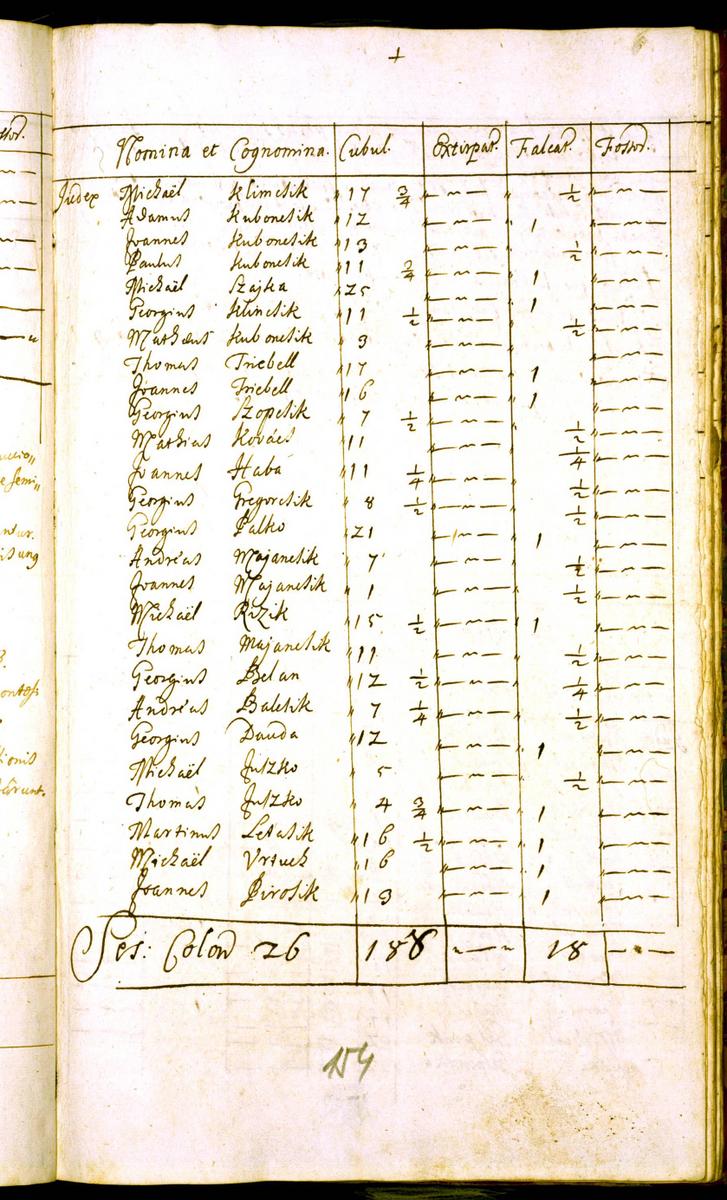 +
Nomina et Cognomina. Cubul. Extirpat. Falcat. Fossor.
Judex Michaël Klimcsik "17 3/4 "—~— " 1/2 "—~—
Adamus Kubonetik "12 "—~— " 1 "—~—
Joannes Kubonetik "13 "—~— " 1/2 "—~—
Paulus Kubonetik "11 3/4 "—~— " 1 "—~—
Michaël Szajka "25 "—~— " 1 "—~—
Georgius Klincsik "11 1/2 "—~— " 1/2 "—~—
Mathaeus Kubonetik " 3 "—~— " "—~—
Thomas Triebell "17 "—~— " 1 "—~—
Joannes Triebell "16 "—~— " 1 "—~—
Georgius Szopcsik " 7 1/2 "—~— " 1/2 "—~—
Mathias Kovács "11 "—~— " 1/4 "—~—
Joannes Haba "11 1/4 "—~— " 1/2 "—~—
Georgius Gregorcsik " 8 1/2 "—~— " 1/2 "—~—
Georgius Palko "21 "—~— " 1 "—~—
Andreas Majancsik " 7 "—~— " 1/2 "—~—
Joannes Majancsik " 1 "—~— " 1/2 "—~—
Michaël Rizik "15 1/2 "—~— " 1 "—~—
Thomas Majancsik "11 "—~— " 1/2 "—~—
Georgius Belan "12 1/2 "—~— " 1/4 "—~—
Andreas Balcsik " 7 1/4 "—~— " 1/2 "—~—
Georgius Dauda "12 "—~— " 1 "—~—
Michaël Juszko " 5 "—~— " 1/2 "—~—
Thomas Juszko " 4 3/4 "—~— " 1 "—~—
Martinus Letasik "16 1/2 "—~— " 1 "—~—
Michaël Vrtuch "16 "—~— " 1 "—~—
Joannes Pirosik "13 "—~— " 1 "—~—
Ses: Colon 26 188 "—~— 18 —"—
154